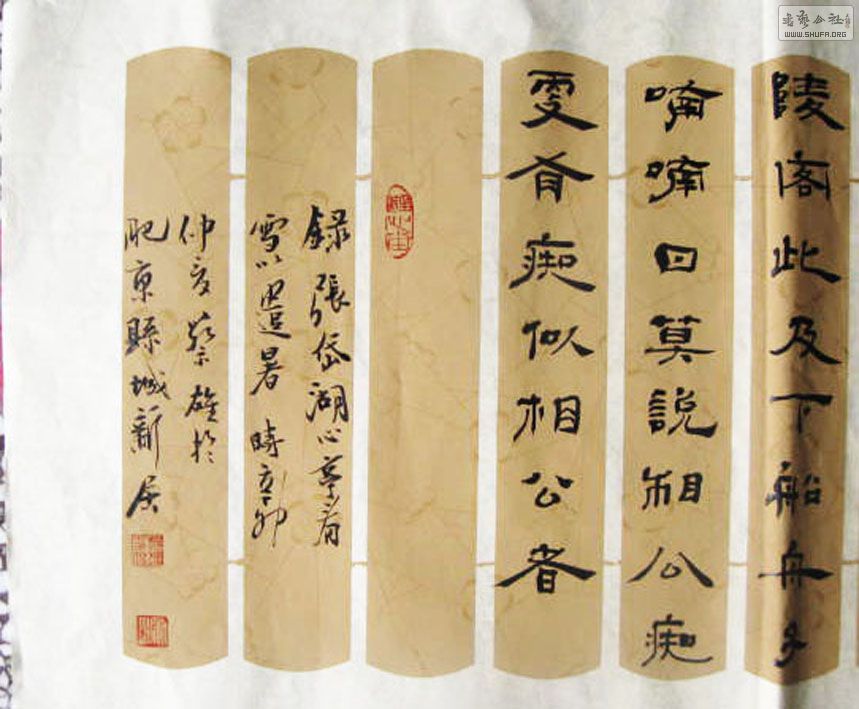 陵客此及下船舟子
喃喃曰莫說相公痴
更有痴似相公者
錄張岱湖心亭看
雪以遣暑 時辛卯
仲夏蔡雄於
肥東縣城新居
书艺公社
WWW.SHUFA.ORG